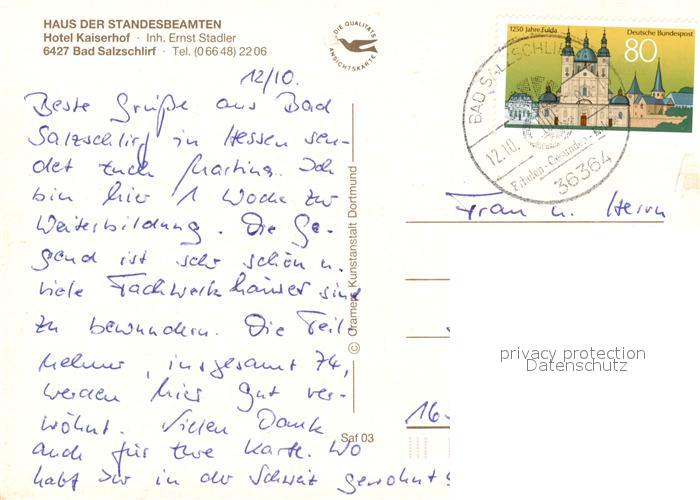 HAUS DER STANDESBEAMTEN
Hotel Kaiserhof · Inh. Ernst Stadler
6427 Bad Salzschlirf · Tel. (0 66 48) 22 06
DIE QUALITÄTS
ANSICHTSKARTE
1250 Jahre Fulda
Deutsche Bundespost
80
BAD SALZSCHLI
12.10.
36364
12/10.
Beste Grüße aus Bad
Salzschlirf in Hessen sen-
det Euch Martina. Ich
bin hier 1 Woche zur
Weiterbildung. Die Ge-
gend ist sehr schön u.
viele Fachwerkhäuser sind
zu bewundern. Die Teil-
nehmer, insgesamt 74,
werden hier gut ver-
wöhnt. Vielen Dank
auch für Eure Karte. Wo
habt Ihr in der Schweiz gewohnt?
© Cramers Kunstanstalt Dortmund
Saf 03
Frau u. Herrn
16-
privacy protection
Datenschutz